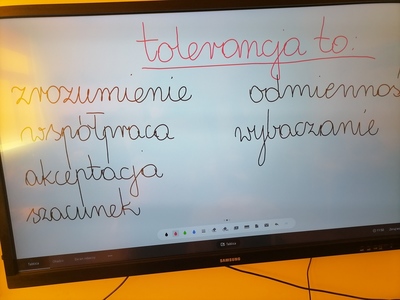 tolerancja to:
zrozumienie odmienność
współpraca wybaczanie
akceptacja
szacunek
Tablica
SAMSUNG